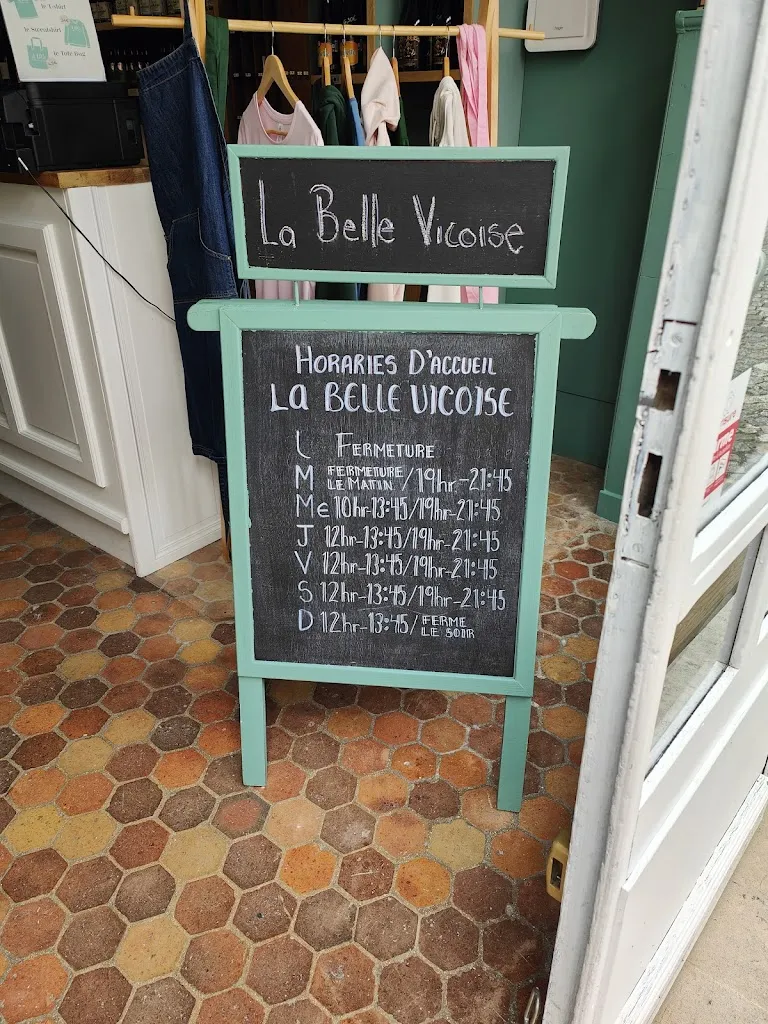 le T-shirt
le Sweatshirt
le Tote Bag
La Belle Vicoise
HORARIES D'ACCUEIL
La BELLE VICOISE
L FERMETURE
M FERMETURE LE MATIN / 19hr-21:45
Me 10hr-13:45/19hr-21:45
J 12hr-13:45/19hr-21:45
V 12hr-13:45/19hr-21:45
S 12hr-13:45/19hr-21:45
D 12hr-13:45/ FERME LE SOIR